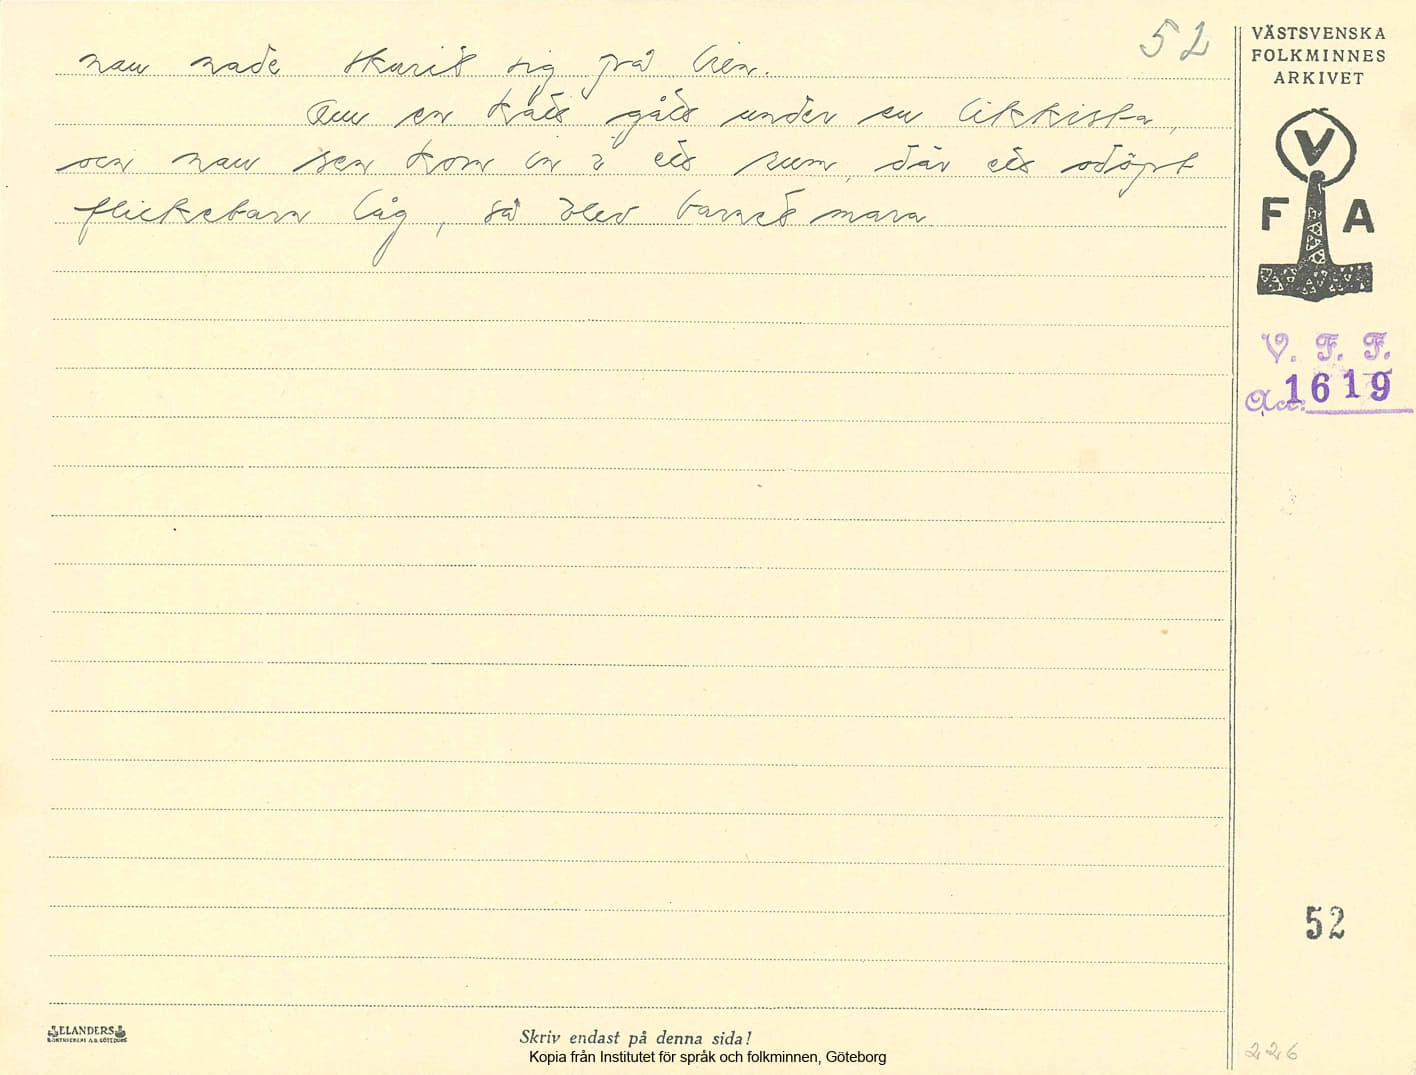 52
han hade skurit sig på lien.
Om en katt gått under en likkista,
och han sen kom in i ett rum, där ett odöpt
flickebarn låg, så blev barnet mara
VÄSTSVENSKA
FOLKMINNES
ARKIVET
V
F A
V. F. F.
Acc: 1619
52
ELANDERS
BOKTRYCKERI A.B. GÖTEBORG
Skriv endast på denna sida!
Kopia från Institutet för språk och folkminnen, Göteborg
226